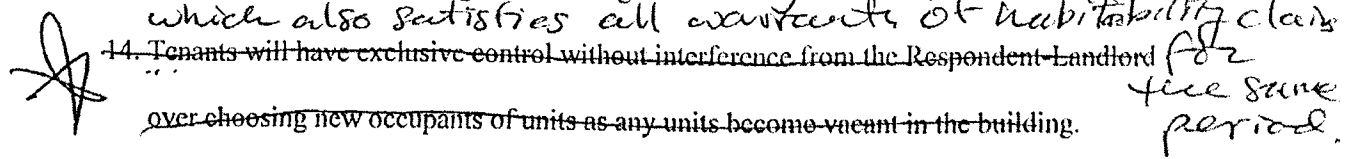 which also satisfies all warranty of habitability claim
14. Tenants will have exclusive control without interference from the Respondent-Landlord for
the same
over choosing new occupants of units as any units become vacant in the building. period.